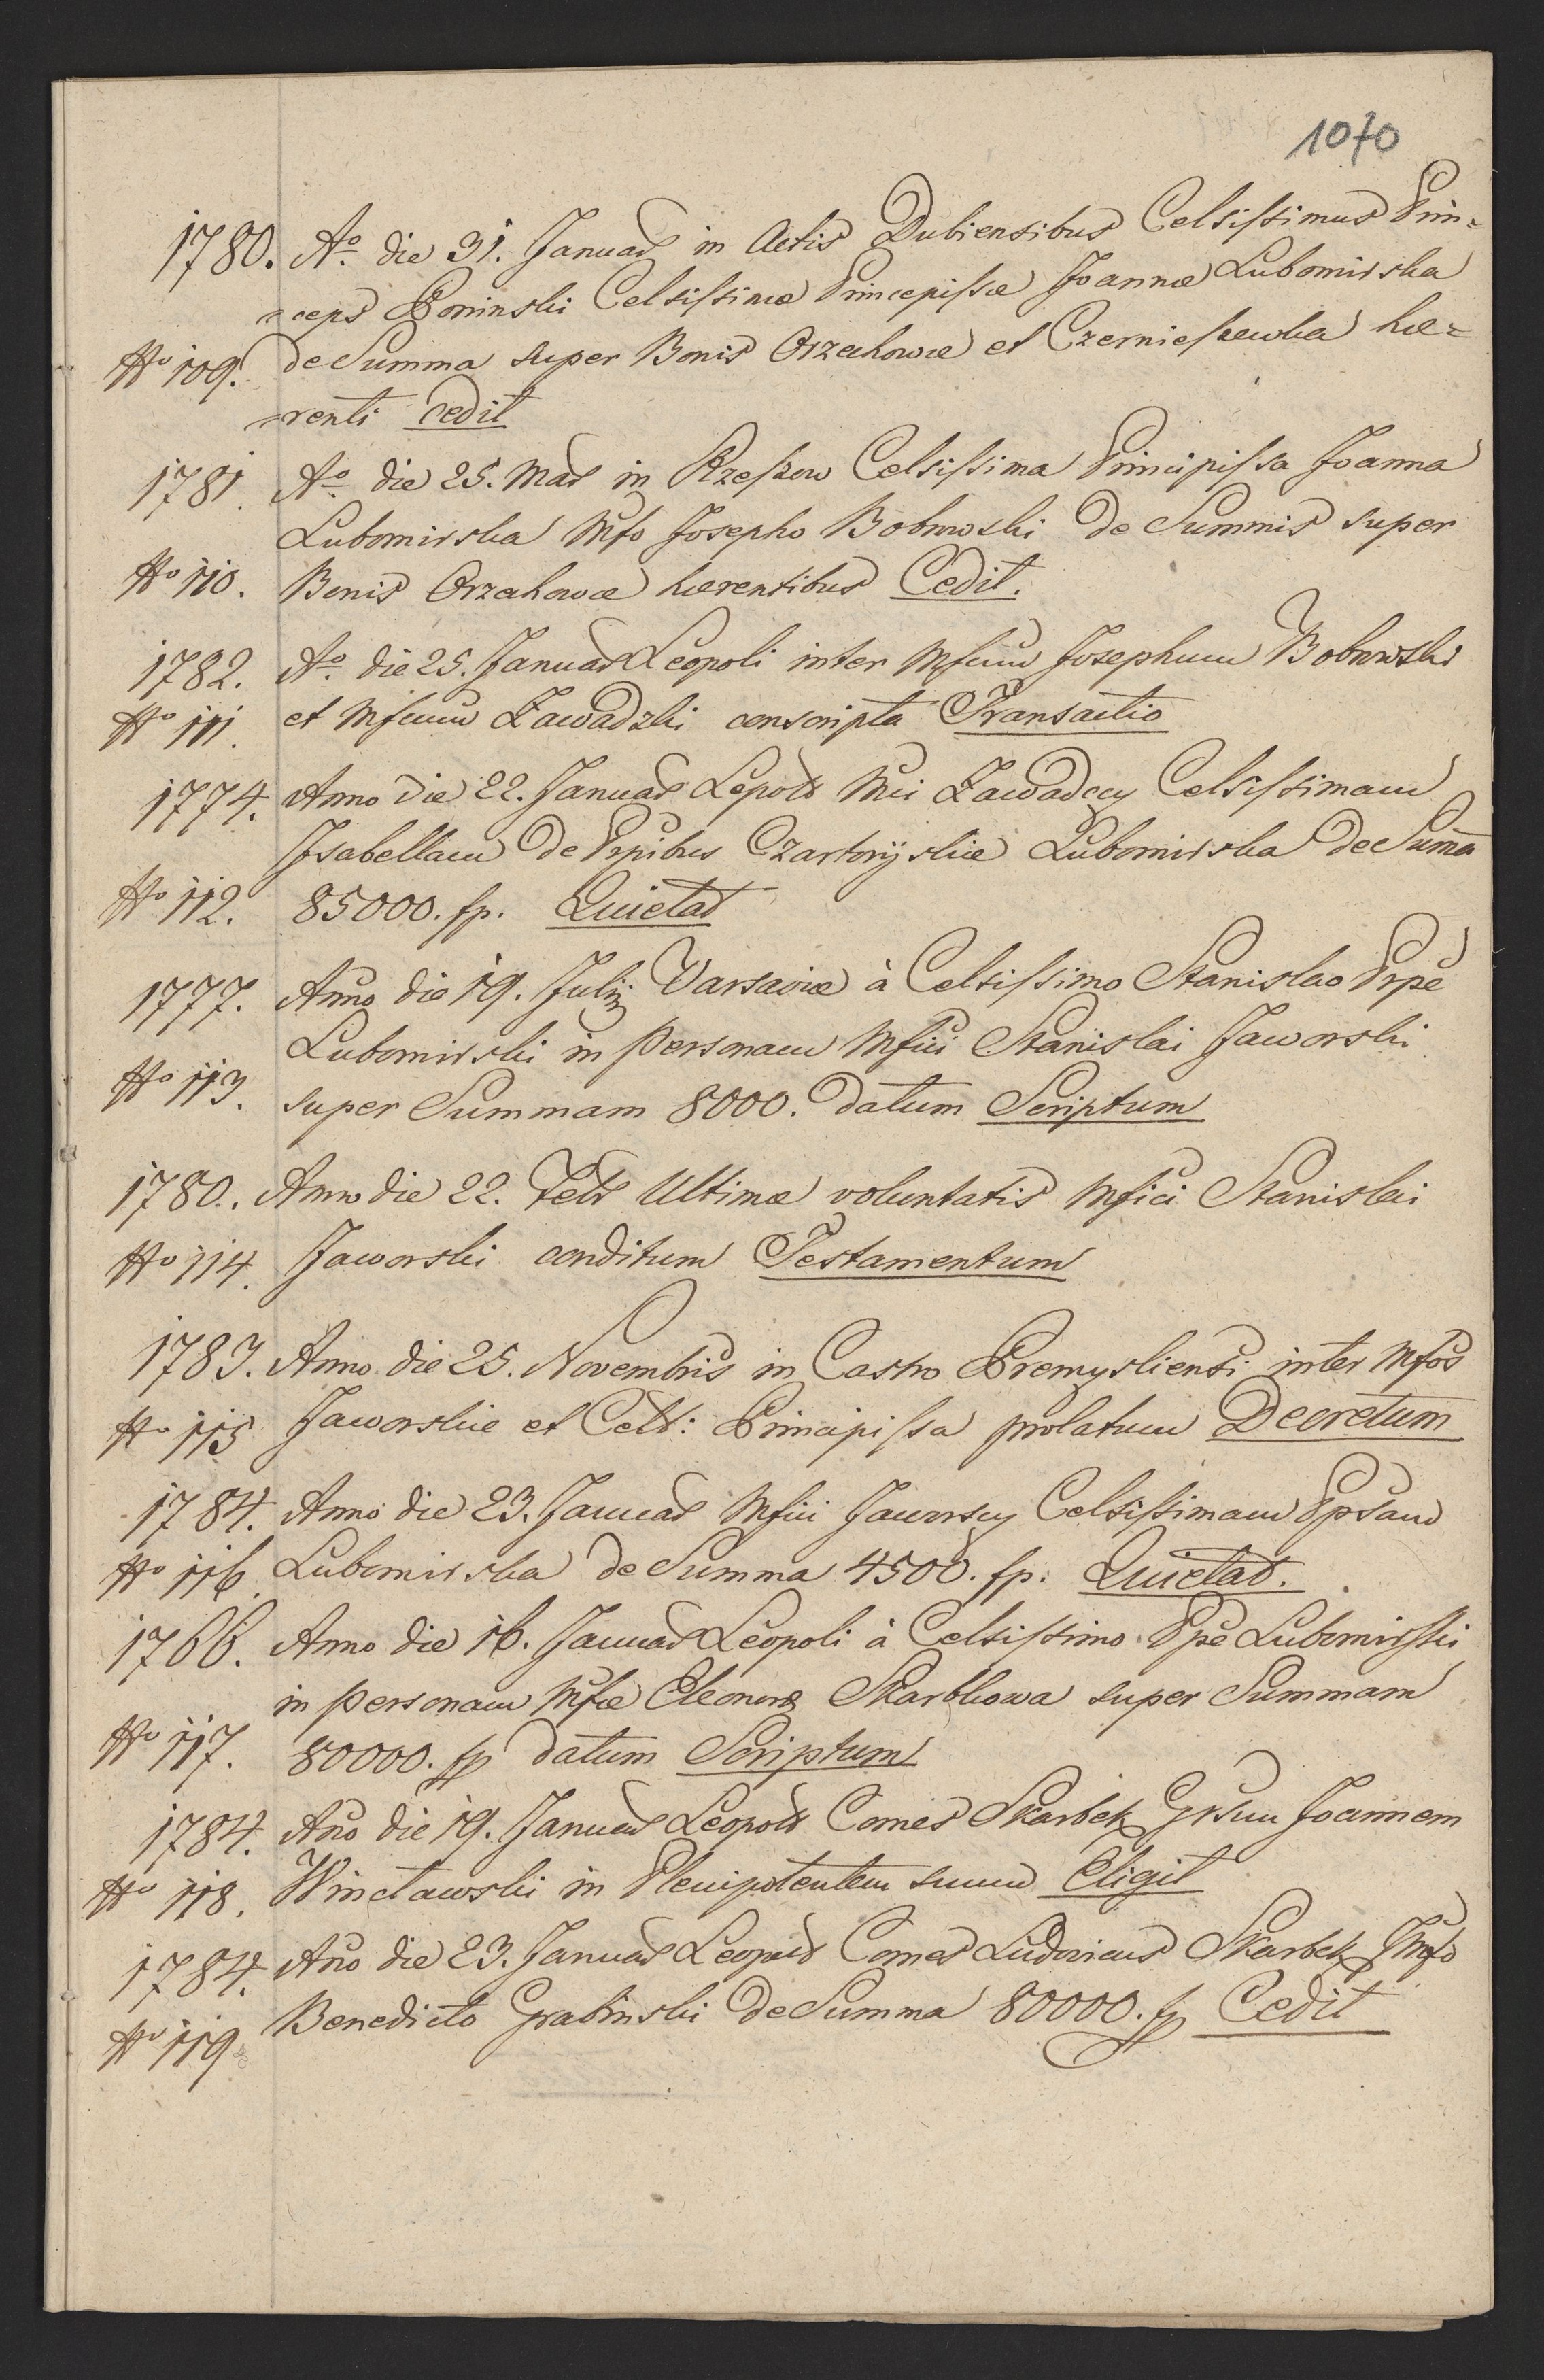 1070
1780. Aº die 31. Januar in Actis Dubiensibus Celsissimus Prin=
=ceps Poninski Celsissimæ Principissæ Joannæ Lubomirska
Nº 109. de Summa super Bonis Orzechowce et Czernieszewka hæ=
=renti cedit
1781. Aº die 25. Maÿ in Rzeszow Celsissima Principissa Joanna
Lubomirska Mfo Josepho Bobrowski de Summis super
Nº 110. Bonis Orzechowce hærentibus Cedit.
1782. Aº die 25. Januar Leopoli inter Mfum Josephum Bobrowski
Nº 111. et Mfcum Zawadzki conscripta Transactio
1774. Anno die 22. Januar Leopold Mci Zawadccy Celsissimam
Isabellam de Prpibus Czartoryskie Lubomirska de Suma
Nº 112. 85000. fp. Quietat
1777. Anno die 19. Julij Varsaviæ à Celsissimo Stanislao Prpe
Lubomirski in Personam Mfici Stanislai Jaworski
Nº 113. super Summam 8000. datum Scriptum
1780. Anno die 22. Febr Ultimæ voluntatis Mfici Stanislai
Nº 114. Jaworski conditum Testamentum
1783. Anno die 25. Novembris in Castro Premysliensi inter Mfos
Nº 115 Jaworskie et Cels: Principissa prolatum Decretum
1784. Anno die 23. Januar Mfici Jaworscy Celsissimam Ppsam
Nº 116. Lubomirska de Summa 4500. fp. Quietat.
1766. Anno die 16. Januar Leopoli à Celsissimo Ppe Lubomirski
in Personam Mfæ Eleonoræ Skarbkowa super Summam
Nº 117. 80000. fp datum Scriptum
1784. Ano die 19. Januar Leopold Comes Skarbek Grsum Joannem
Nº 118. Winctawski in Plenipotentem suum Eligit
1784. Ano die 23. Januar Leopold Comes Ludovicus Skarbek
Nº 119. Benedicto Grabinski de Summa 80000. fp Cedit